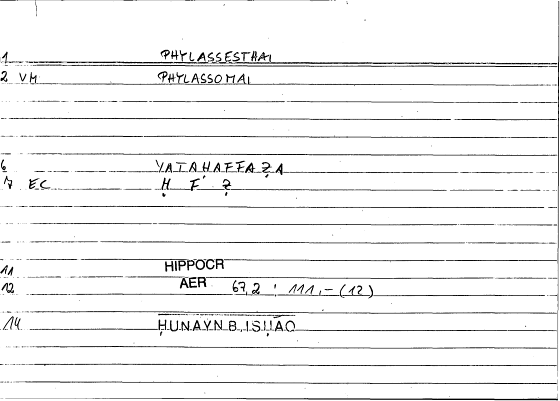 1 PHYLASSESTHAI
2 VM PHYLASSOMAI
6 YATAḤAFFAẒA
7 EC Ḥ F Ẓ
11 HIPPOCR
12 AER 67,2 ; 111,-(12)
14 ḤUNAYN B. ISḤĀQ